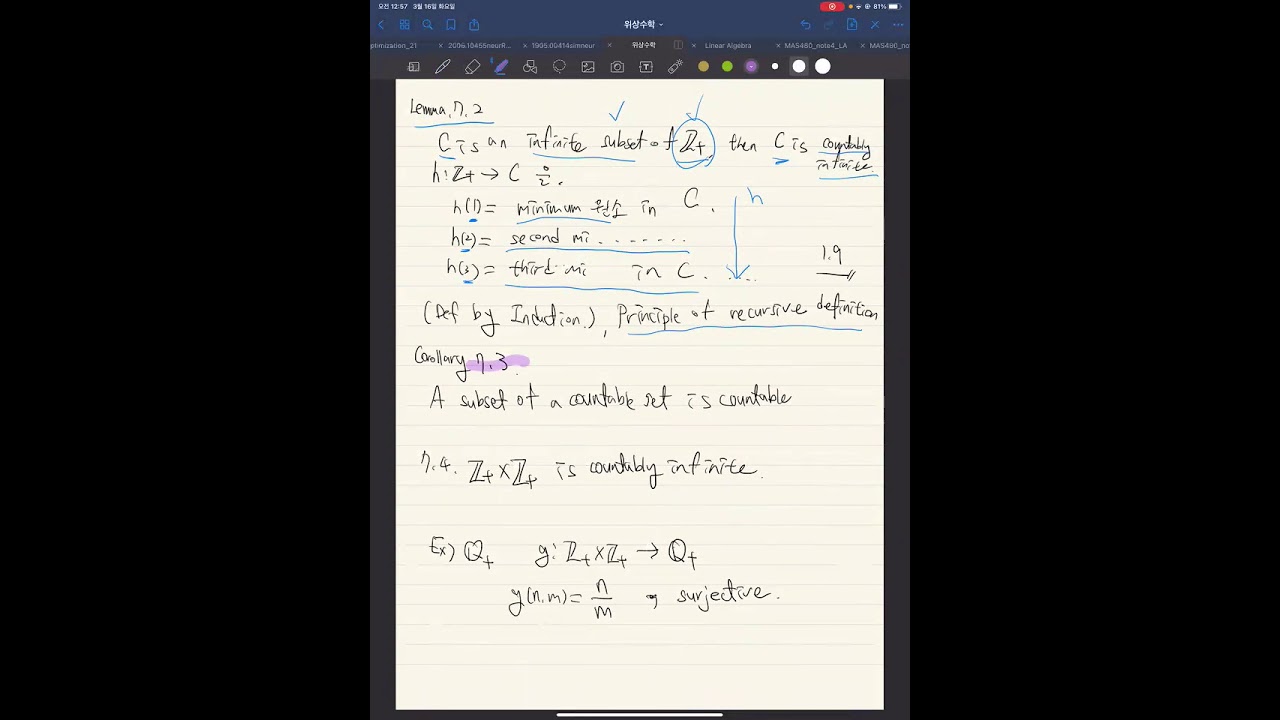 오전 12:57 3월 16일 화요일
81%
위상수학
ptimization_21
2006.10455neurR...
1905.00414simneur
위상수학
Linear Algebra
MAS480_note4_LA
Lemma 7.2
C is an infinite subset of ℤ+, then C is countably infinite.
h: ℤ+ → C 를.
h(1)= minimum 원소 in C.
h
h(2)= second mi.........
1.9
h(3)= third mi in C. ....
(Def by Induction.), Principle of recursive definition
Corollary 7.3.
A subset of a countable set is countable
7.4. ℤ+×ℤ+ is countably infinite.
Ex) ℚ+ g: ℤ+×ℤ+ → ℚ+
g(n,m)= n/m , surjective.